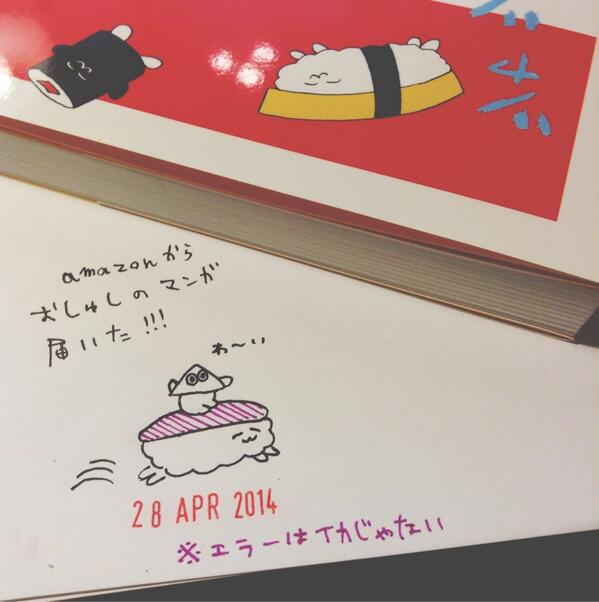 amazonから
おしゅしのマンガ
届いた!!!
わ～い
28 APR 2014
※エラーはイカじゃない